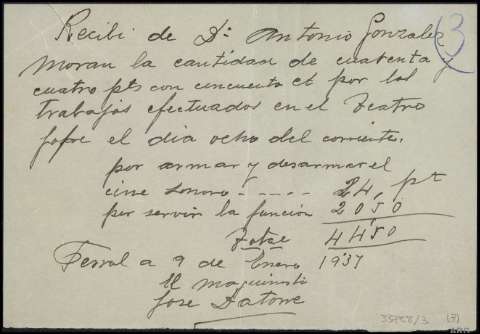 Recibi de Dn Antonio Gonzalez
Moran la cantidad de cuarenta y
cuatro pts con cincuenta ct por los
trabajos efectuados en el Teatro
Jofre el dia ocho del corriente.
por armar y desarmar el
cine sonoro - - - - - 24, pt
per servir la función 2050
Total 44'50
Ferrol a 9 de Enero 1937
El maquinista
Jose Datorre
3
35728/3 (3)